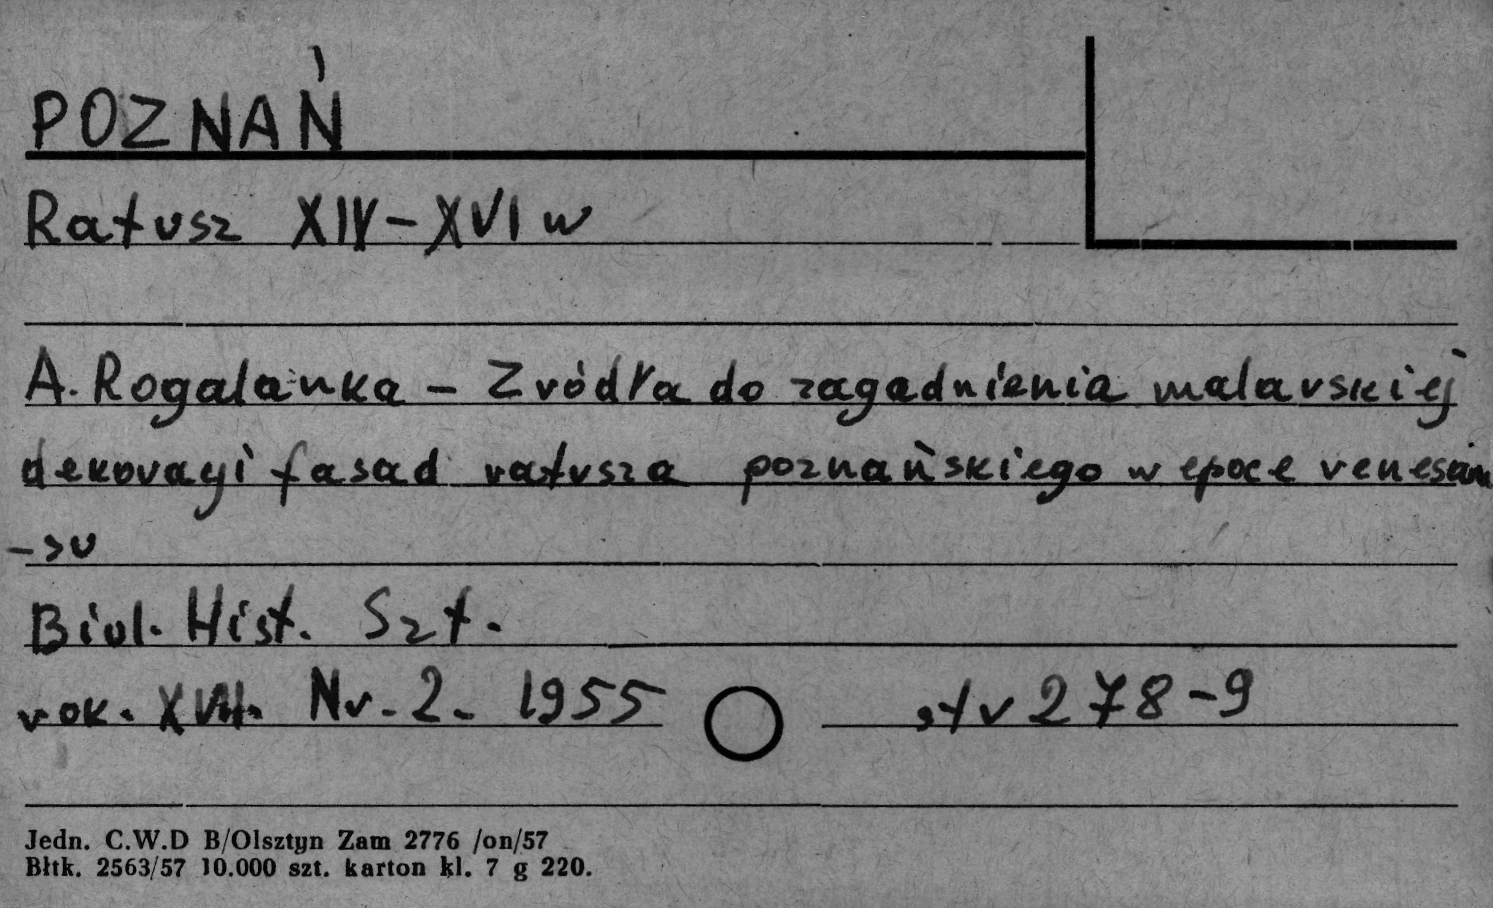 POZNAŃ
Ratusz XIV-XVI w
A. Rogalanka - Zródła do zagadnienia malarskiej
dekoracyi fasad ratusza poznańskiego w epoce renesan
-su
Biul. Hist. Szt.
rok. XVII. Nr. 2. 1955 str 278-9
Jedn. C.W.D B/Olsztyn Zam 2776 /on/57
Błtk. 2563/57 10.000 szt. karton kl. 7 g 220.